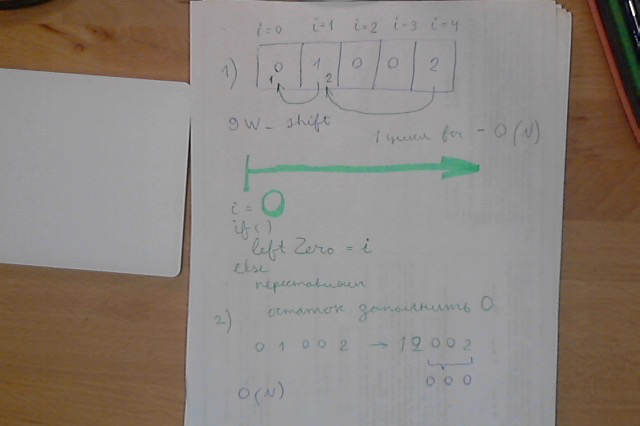 i=0 i=1 i=2 i=3 i=4
1) 0 1 0 0 2
1 2
shift
1 цикл for - O(N)
i = 0
if()
left Zero = i
else
переставляем
остаток заполнить 0
2)
0 1 0 0 2 → 1 2 0 0 2
0 0 0
O(N)